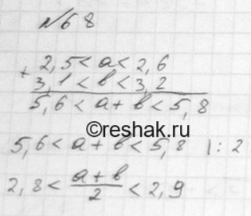 №68
2,5 < a < 2,6
+
3,1 < в < 3,2
5,6 < a + в < 5,8
©reshak.ru
5,6 < a + в < 5,8 |: 2
2,8 < (a + в)/2 < 2,9